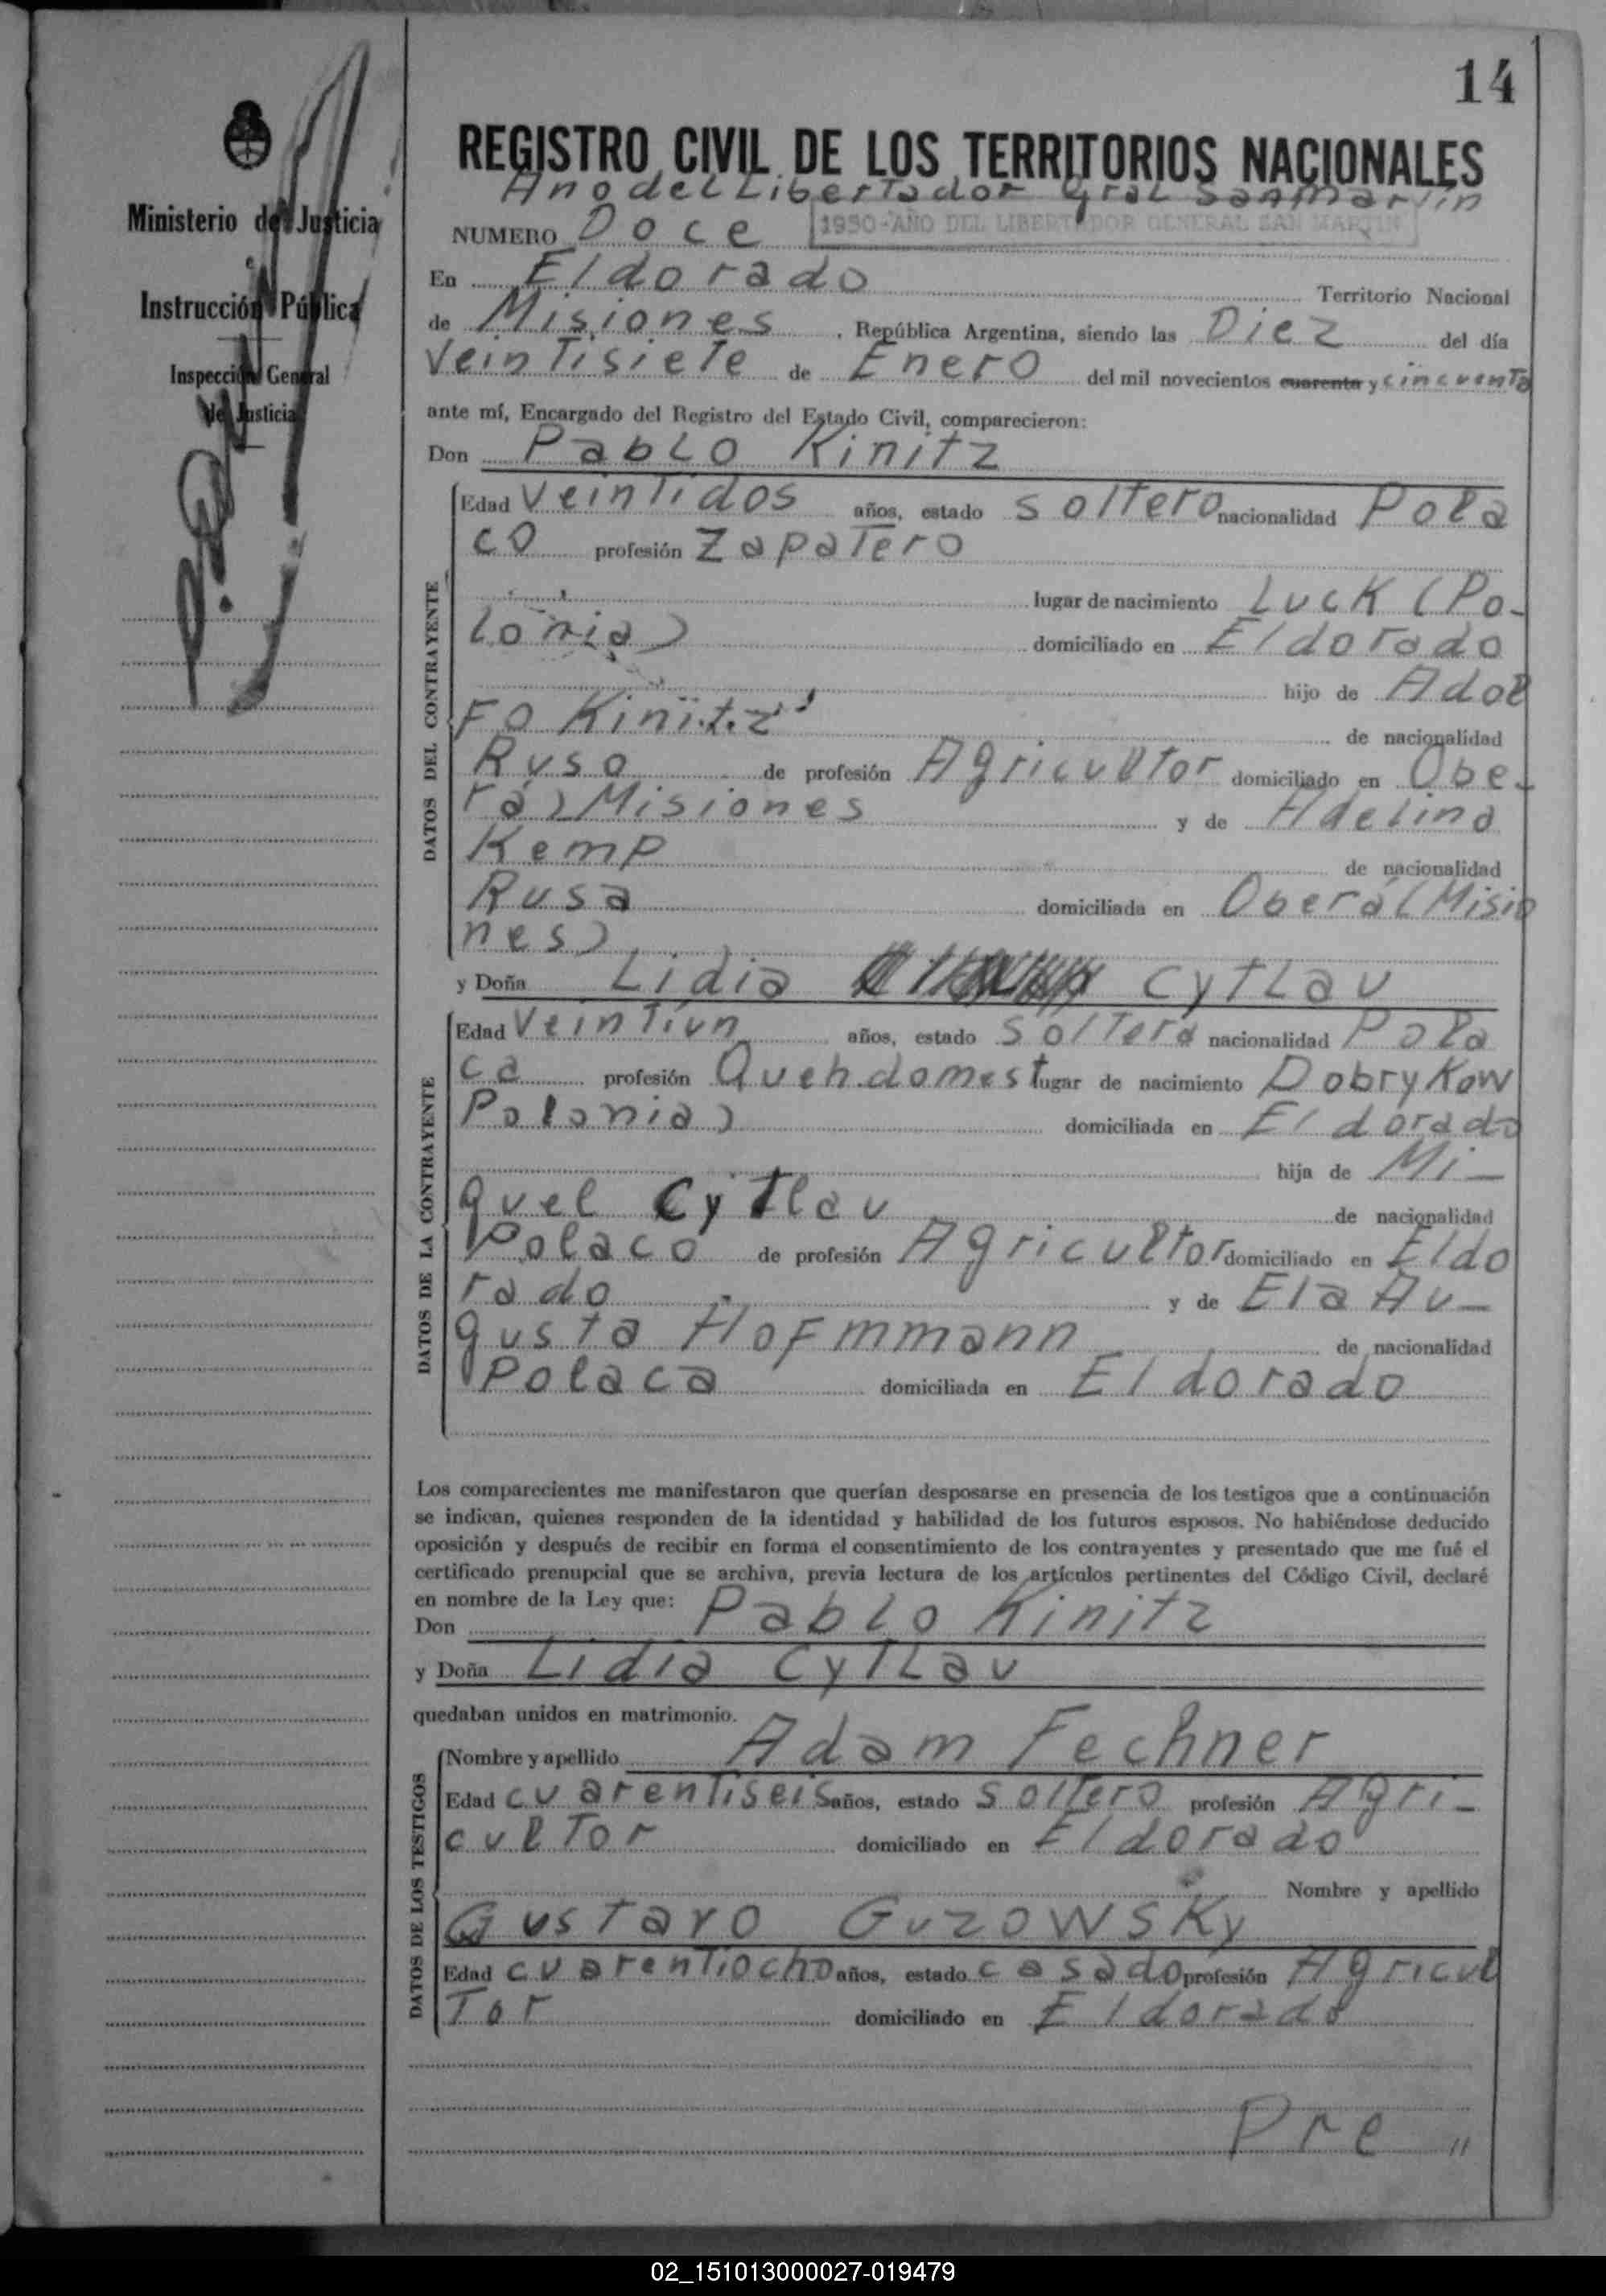 14
Ministerio de Justicia
e
Instrucción Pública
Inspección General
de Justicia
REGISTRO CIVIL DE LOS TERRITORIOS NACIONALES
Ano del Libertador Gral San Martin
NUMERO Doce 1950-AÑO DEL LIBERTADOR GENERAL SAN MARTIN
En Eldorado Territorio Nacional
de Misiones , República Argentina, siendo las Diez del día
veintisiete de Enero del mil novecientos cuarenta y cincuenta
ante mí, Encargado del Registro del Estado Civil, comparecieron:
Don Pablo Kinitz
DATOS DEL CONTRAYENTE
Edad veintidos años, estado soltero nacionalidad Pola
co profesión Zapatero
lugar de nacimiento Luck (Po-
lonia) domiciliado en Eldorado
hijo de Adol
Fo Kinitz de nacionalidad
Ruso de profesión Agricultor domiciliado en Obe-
rá) Misiones y de Adelina
Kemp de nacionalidad
Rusa domiciliada en Oberá (Misio
nes)
y Doña Lidia Cytlau
DATOS DE LA CONTRAYENTE
Edad Veintiun años, estado Soltera nacionalidad Pola
ca profesión Quehdomest lugar de nacimiento Dobrykow
Polonia) domiciliada en Eldorado
hija de Mi-
guel Cytlau de nacionalidad
Polaco de profesión Agricultor domiciliado en Eldo
rado y de Ela Au-
gusta Hofmmann de nacionalidad
Polaca domiciliada en Eldorado
Los comparecientes me manifestaron que querían desposarse en presencia de los testigos que a continuación
se indican, quienes responden de la identidad y habilidad de los futuros esposos. No habiéndose deducido
oposición y después de recibir en forma el consentimiento de los contrayentes y presentado que me fué el
certificado prenupcial que se archiva, previa lectura de los artículos pertinentes del Código Civil, declaré
en nombre de la Ley que:
Don Pablo Kinitz
y Doña Lidia Cytlau
quedaban unidos en matrimonio.
DATOS DE LOS TESTIGOS
Nombre y apellido Adam Fechner
Edad cuarentiseis años, estado soltero profesión Agri-
cultor domiciliado en Eldorado
Nombre y apellido
Gustavo Guzowsky
Edad cuarentiocho años, estado casado profesión Agricul
Tor domiciliado en Eldorado
Pre "
02_151013000027-019479